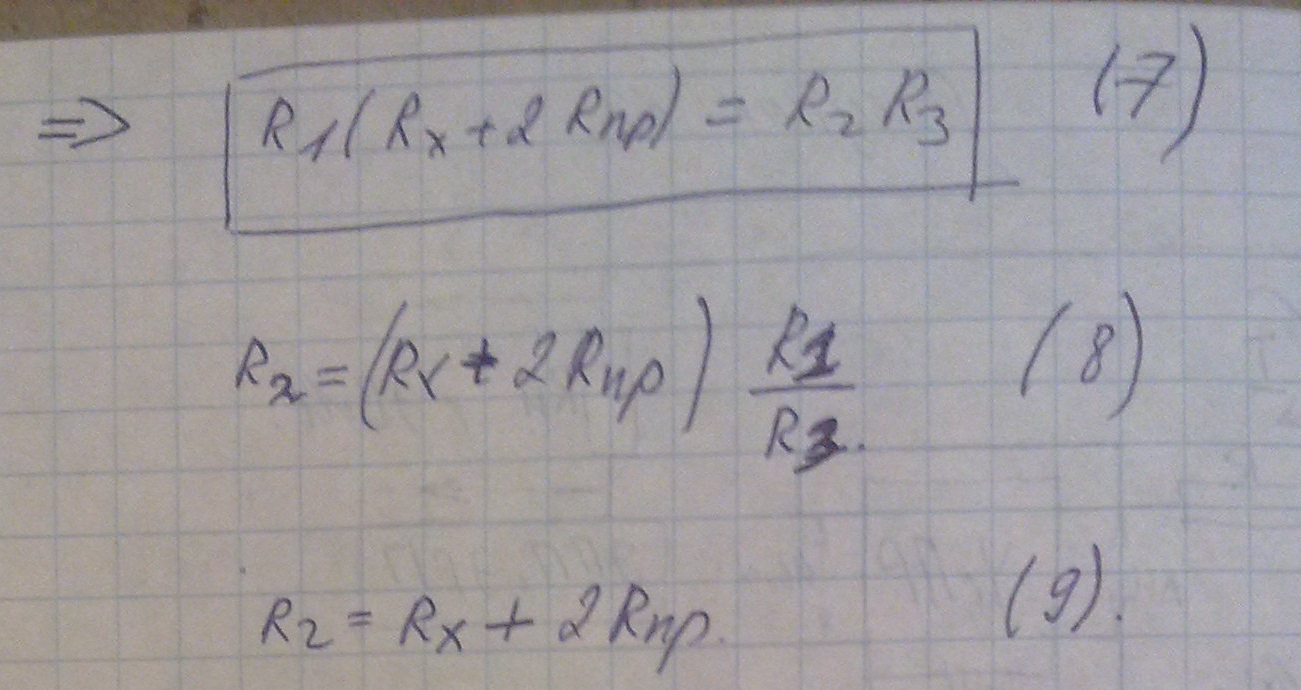 => R1(Rx+2Rпр) = R2R3 (7)
R2=(Rx+2Rпр) R1/R3. (8)
R2=Rx+2Rпр. (9).